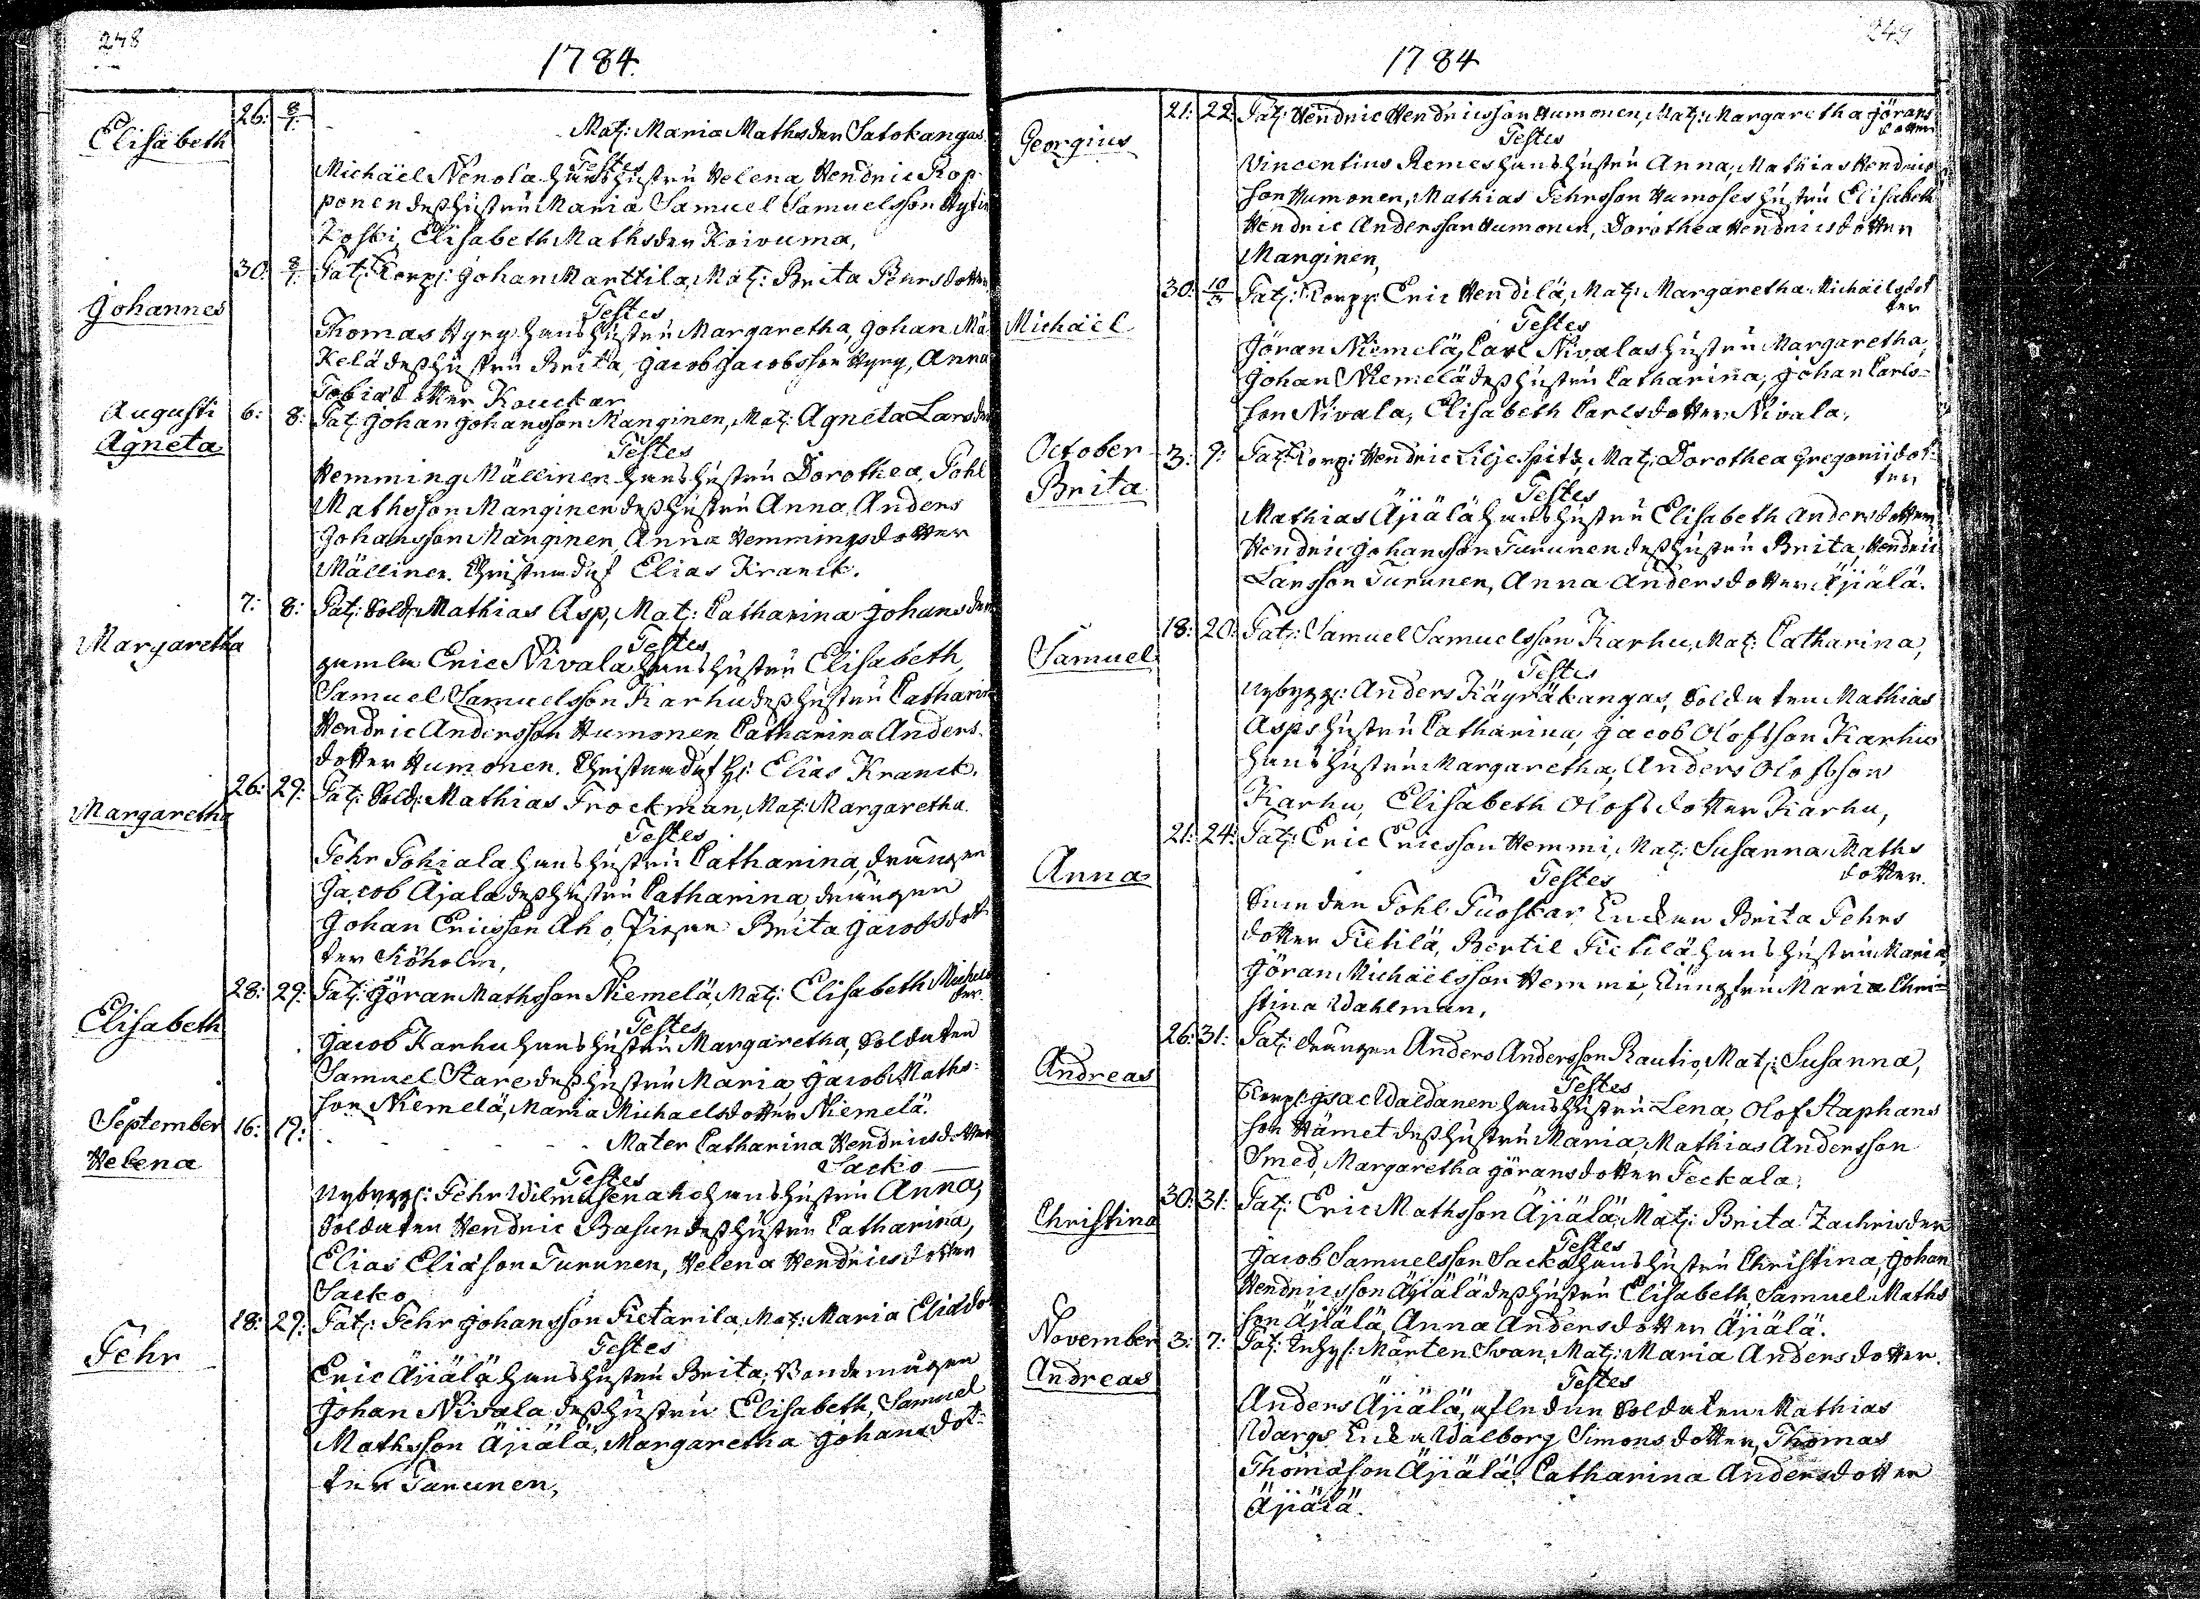 248
1784.
Elisabeth 26: 8/7.
Mat: Maria Mathsder Satokangas.
Testes
Michaël Nenola hans hustru Helena Hendric Rop-
ponen dess hustru Maria Samuel Samuelsson Hytti
koski, Elisabeth Mathsder Koivuma,
Johannes 30. 8/7. Pat: Korp: Johan Marttila, Mat: Brita Pehrsdotter
Testes
Thomas Hyry hans hustru Margaretha, Johan Mä
kelä dess hustru Brita, Jacob Jacobsson Hyry, Anna
Tobiædotter Kouckar
Augusti 6: 8: Pat: Johan Johansson Manginen, Mat: Agneta Larsder
Agneta
Testes
Hemming Mällinen hans hustru Dorothea, Pohl
Mathsson Manginen dess hustru Anna, Anders
Johansson Manginen, Anna Hemmingsdotter
Mällinen. Christnad af Elias Kranck.
Margaretha 7: 8: Pat: Sold: Mathias Asp, Mat: Catharina Johansder
Testes
gamla Eric Nivala hans hustru Elisabeth,
Samuel Samuelsson Karhu dess hustru Catharina
Hendric Andersson Humonen Catharina Anders-
dotter Humonen. Christnad af H: Elias Kranck.
Margaretha 26: 29: Pat: Sold: Mathias Trockman, Mat: Margaretha.
Testes
Pehr Pohiala hans hustru Catharina, drängen
Jacob Ajala dess hustru Catharina, drängen
Johan Ericsson Aho, Pigan Brita Jacobsdot
ter Köholm,
Elisabeth 28: 29: Pat: Göran Mathsson Niemelä, Mat: Elisabeth Michels
der.
Testes
Jacob Karhu hans hustru Margaretha, Soldaten
Samuel Stare dess hustru Maria, Jacob Maths-
son Niemelä, Maria Michaelsdotter Niemelä.
September 16: 19:
Mater Catharina Hendricsdotter
Helena
Sacko
Testes
Nybygg: Pehr Wilmusenaho hans hustru Anna,
Soldaten Hendric Basun dess hustru Catharina,
Elias Eliæson Turunen, Helena Hendricsdotter
Sacko
Pehr 18: 29: Pat: Pehr Johansson Pietarila, Mat: Maria Eliædot
Testes
Eric Äjälä hans hustru Brita, Bondemågen
Johan Nivala dess hustru Elisabeth, Samuel
Mathsson Äjälä, Margaretha Johansdot-
ter Turunen,
249
1784
Georgius 21: 22: Pat: Hendric Hendricsson Humonen, Mat: Margaretha Görans
dotter
Testes
Vincentius Remes hans hustru Anna, Mathias Hendrics
son Humonen, Mathias Pehrsson Humoses hustru Elisabeth
Hendric Andersson Humonen, Dorothea Hendricsdotter
Manginen,
Michaël 30: Pat: Korp: Eric Hendilä, Mat: Margaretha Michaëlsdot
ter
Testes
Göran Niemelä, Carl Nivalas hustru Margaretha,
Johan Niemelä dess hustru Catharina, Johan Carls-
son Nivala, Elisabeth Carlsdotter Nivala,
October 3: 9: Pat: Korp: Hendric Liljespitz, Mat: Dorothea Gregoriidot-
ter
Brita
Testes
Mathias Äjälä hans hustru Elisabeth Andersdotter
Hendric Johansson Turunen dess hustru Brita, Hendric
Larsson Turunen, Anna Andersdotter Äjälä.
Samuel 18: 20: Pat: Samuel Samuelsson Karhu, Mat: Catharina,
Testes
Nybygg: Anders Käyräkangas, Soldaten Mathias
Asps hustru Catharina, Jacob Olofsson Karhu
hans hustru Margaretha, Anders Olofsson
Karhu, Elisabeth Olofsdotter Karhu,
Anna 21: 24: Pat: Eric Ericsson Hemmi, Mat: Susanna Maths
dotter.
Testes
Pohl Enkan Brita Pehrs
dotter Pietilä, Bertil Pietilä hans hustru Maria,
Göran Michaëlsson Hemmi, Jungfru Maria Chri-
stina Wahlman,
Andreas 26: 31: Pat: drängen Anders Andersson Rautio, Mat: Susanna,
Testes
Korpl: Isac Waldanen hans hustru Lena, Olof Staphans
son Hämet dess hustru Maria, Mathias Andersson
Smed, Margaretha Göransdotter Peckala.
Christina 30: 31: Pat: Eric Mathsson Äjälä, Mat: Brita Zachrisder
Testes
Jacob Samuelsson Sacko hans hustru Christina, Johan
Hendricsson Äjälä dess hustru Elisabeth, Samuel Maths
son Äjälä, Anna Andersdotter Äjälä.
November 3: 7: Pat: Inhys: Mårten Svan, Mat: Maria Andersdotter.
Andreas
Testes
Anders Äjälä, afledne Soldaten Mathias
Wargs Enka Walborg Simonsdotter, Thomas
Thomæson Äjälä, Catharina Andersdotter
Äjälä.